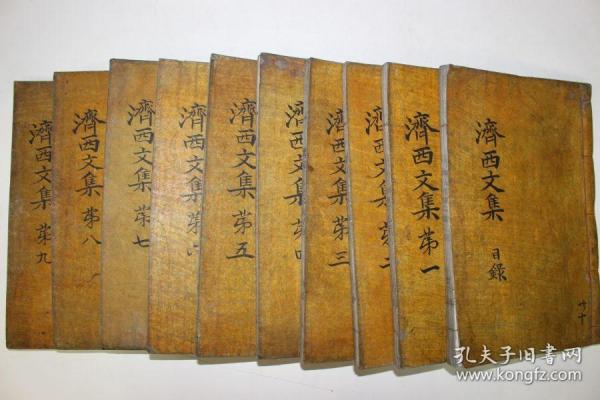 濟西文集 目錄
共十
濟西文集 第一
濟西文集 第二
濟西文集 第三
濟西文集 第四
濟西文集 第五
濟西文集 第六
濟西文集 第七
濟西文集 第八
濟西文集 第九
孔夫子旧书网
www.kongfz.com